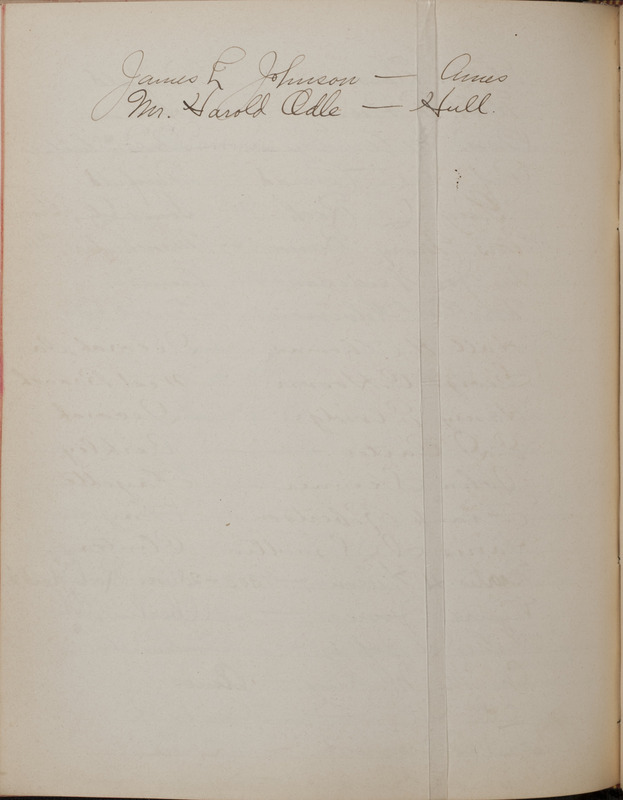 James E Johnson — Ames
Mr. Harold Odle — Hull.